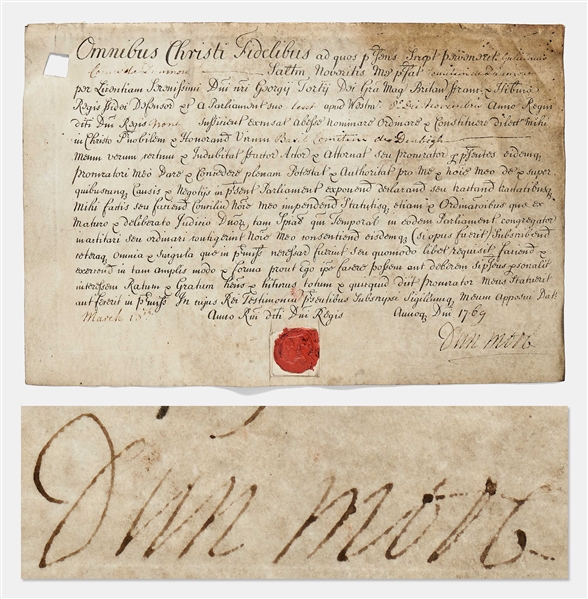 Omnibus Christi Fidelibus ad quos p͠sens Script pervenerit
Comes de Dunmore Saltm Noveritis Me p͠fat Comitem de Dunmore
por Licentiam Serenissimi Dni nri Georgij Tertij Dei Gra Mag Britan Fran: & Hibnia
Regis Fidei Defensor et a Parliament suo tent apud Westm Anno Regni
dicti Dni Regis nono Sufficient excusat abesse Nominare Ordinare & Constituere dilect mihi
in Christo Prnobilem & Honorand Virum Basil Comitem de Denbigh
Meum verum certum & Indubitat Factor Actor & Attornat seu procurator p p͠sentes eidemq,
Procuratori Meo Dare & Concedere plenam Potestat & Authoritat pro Me & noie Meo de & super
quibuscunq, Causis & Negotijs in p͠sent Parliament exponend declarand seu tractand tractatibusq,
Mihi factis seu faciend Consiliu Noie meo impendend Statutisq, etiam & Ordinatoibus que ex
Maturo & deliberato Judicio Dnoz, tam Spial qm Temporal in eodem Parliament congregator
inactitari seu ordinari contigerint Noie Meo consentiend eisdemq, (si opus fuerit) Subscribend
ceteraq, Omnia & Singula que in p͠miss necessar fuerint seu quomodo libet requisit faciend &
exercend in tam amplis modo & forma prout Ego ipse facere possem aut deberem si p͠sens p͠sonalit
interessem Ratum & Gratum Hens & hiturus totum & quicquid dict Procurator Meus Statuerit
aut fecerit in p͠miss In cujus Rei Testimoniu p͠sentibus Subscripsi Sigillumq, Meum Apposui Dat
March 13th Anno Rni dicti Dni Regis Annoq, Dni 1769
Dunmore
Dunmore